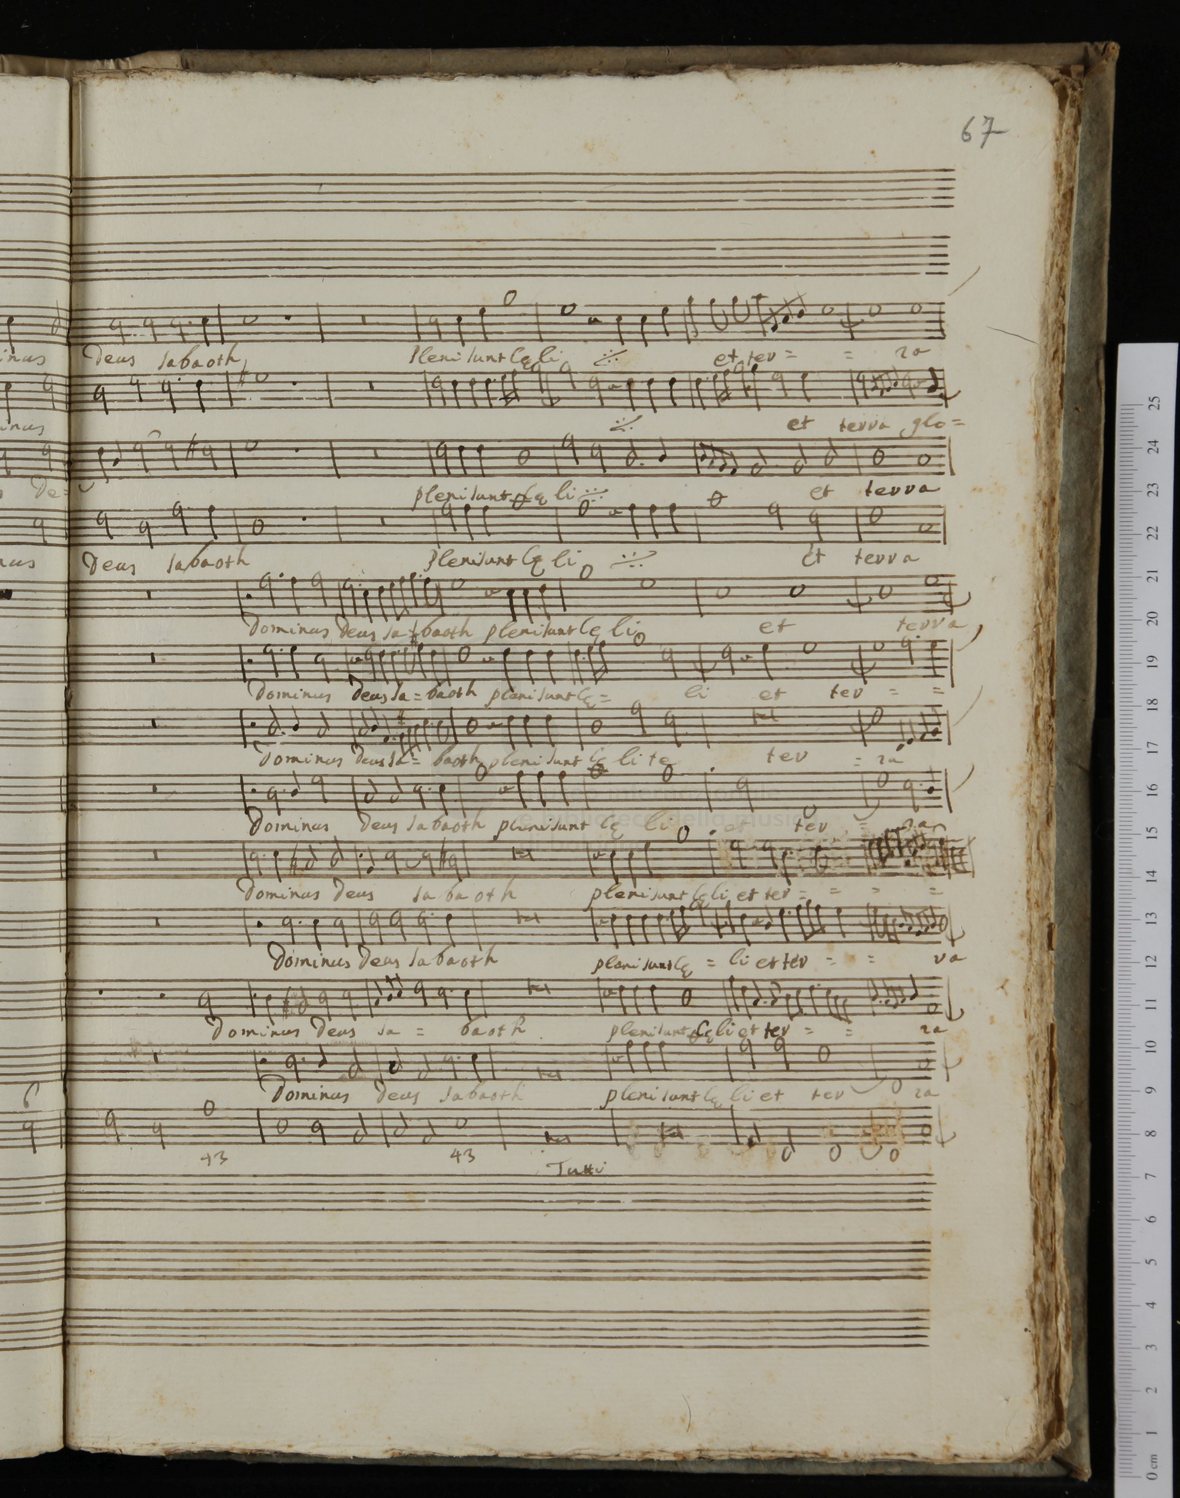 67
inus Deus sabaoth pleni sunt cęli et ter = = ra
inus et terra glo=
s De= pleni sunt cęli et terra
nus Deus sabaoth pleni sunt cęli et terra
Dominus Deus sa = baoth pleni sunt cę li et terra
Dominus Deus sa = baoth pleni sunt cę = li et ter = =
Dominus Deus sa = baoth pleni sunt cę li te ter = ra
Dominus Deus sabaoth pleni sunt cę li et ter = ra
Dominus Deus sabaoth pleni sunt cęli et ter = = = =
Dominus Deus sabaoth pleni sunt cę = li et ter = = ra
Dominus Deus sa = baoth pleni sunt cęli et ter = = ra
Dominus Deus sabaoth pleni sunt cę li et ter ra
6
43 43 Tutti